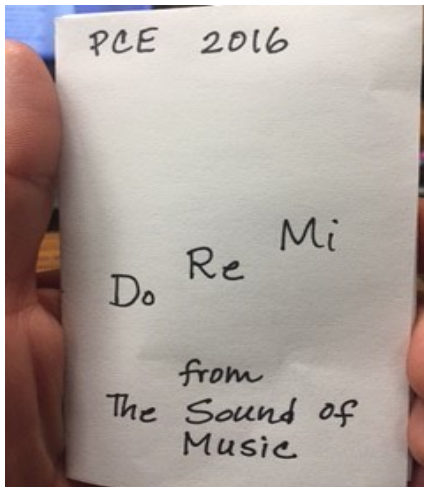 PCE 2016
Do Re Mi
from
The Sound of
Music